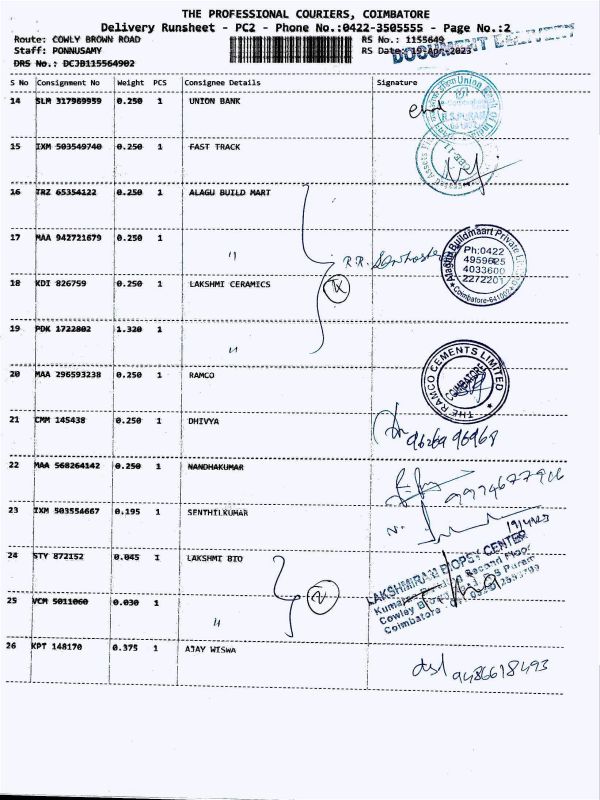 THE PROFESSIONAL COURIERS, COIMBATORE
Delivery Runsheet - PC2 - Phone No.:0422-3505555 - Page No.:2
Route: COWLY BROWN ROAD RS No.: 1155649
Staff: PONNUSAMY RS Date: 19-Apr-2023
DOCUMENT DELIVERY
DRS No.: DCJB115564902
S No Consignment No Weight PCS Consignee Details Signature
14 SLM 317989959 0.250 1 UNION BANK
15 IXM 503549740 0.250 1 FAST TRACK
16 TRZ 65354122 0.250 1 ALAGU BUILD MART
17 MAA 942721679 0.250 1 "
Alaghu Buildmaart Private Limited
Ph:0422
4959625
4033600
2272201
Coimbatore-641002
18 KDI 826759 0.250 1 LAKSHMI CERAMICS
19 PDK 1722802 1.320 1 "
20 MAA 296593238 0.250 1 RAMCO
THE RAMCO CEMENTS LIMITED
COIMBATORE
21 CMM 145438 0.250 1 DHIVYA
96269 96968
22 MAA 568264142 0.250 1 NANDHAKUMAR
23 IXM 503554667 0.195 1 SENTHILKUMAR
19/4/23
24 STY 872152 0.045 1 LAKSHMI BIO
LAKSHMIRAM BIOPSY CENTER
Second Floor
Cowley Brown R S Puram
Coimbatore
25 VCM 5011060 0.030 1 "
26 KPT 148170 0.375 1 AJAY WISWA
9486618493